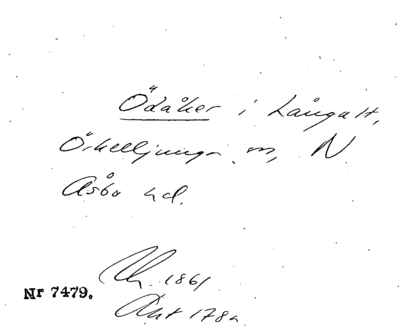 Ödåker i Långalt,
Örkelljunga sn, N.
Åsbo hd.
1861
Nr 7479.
Ant 178